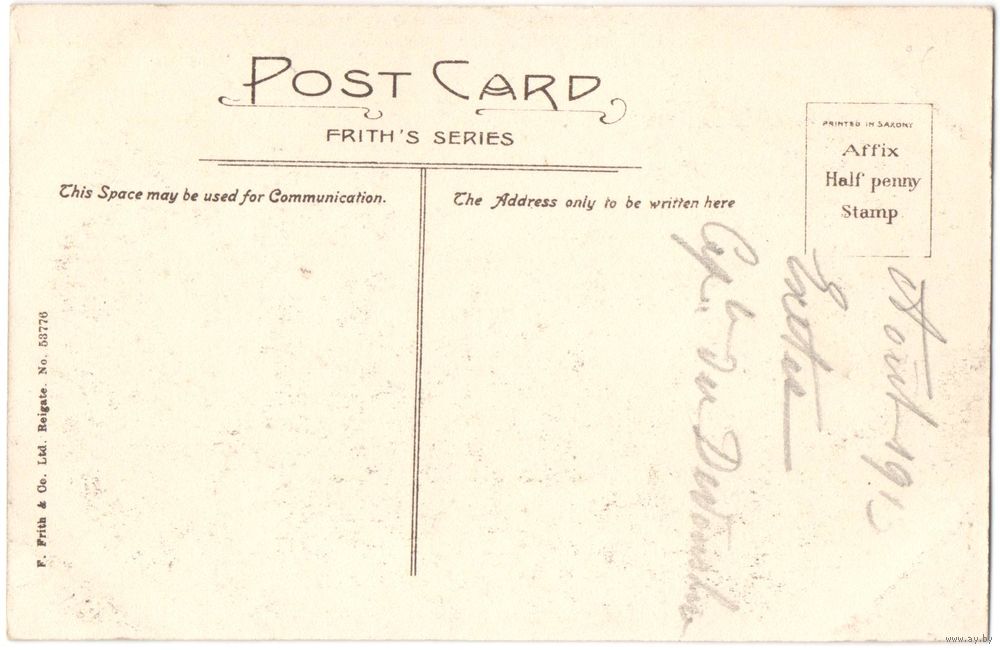 POST CARD
FRITH'S SERIES
This Space may be used for Communication.
The Address only to be written here
PRINTED IN SAXONY
Affix
Half penny
Stamp
F. Frith & Co. Ltd. Reigate. No. 53776
Août 191
Exeter
du Devonshire
www.ay.by